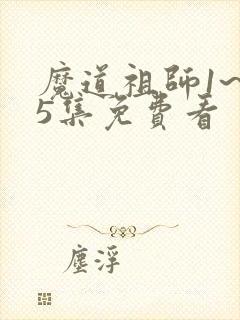 魔道祖師1~
5集免費看
塵浮